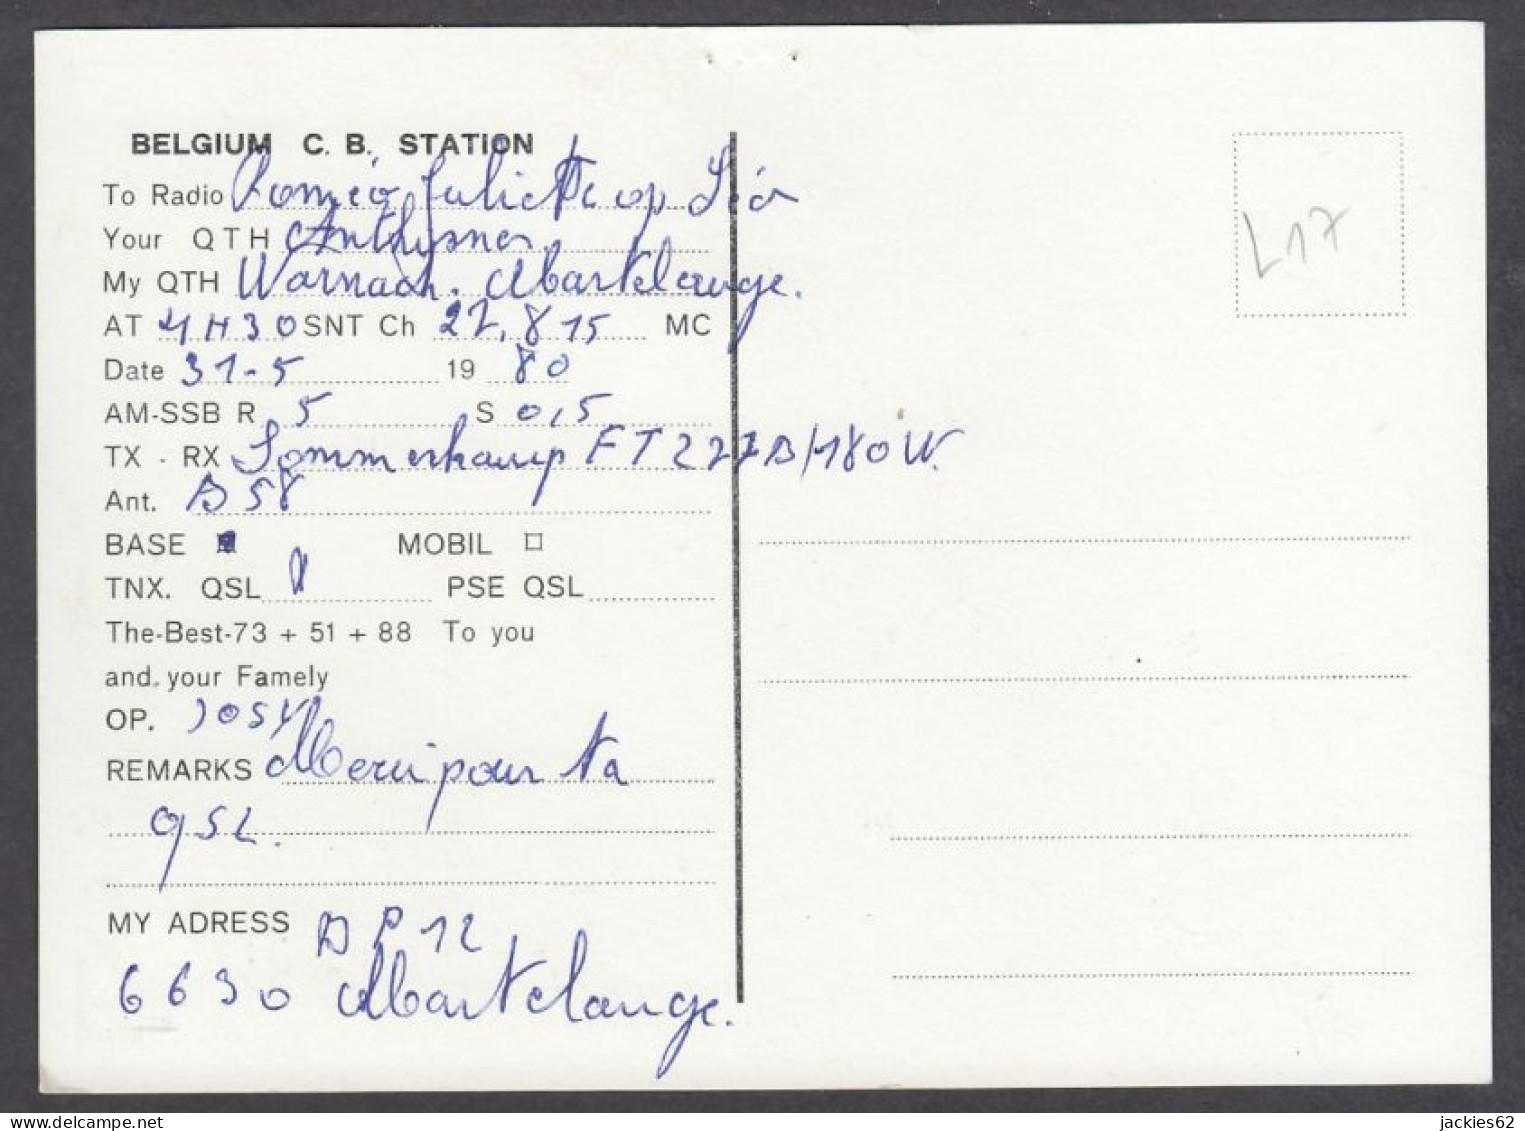 BELGIUM C. B. STATION
To Radio Roméo Juliette op Léa
Your QTH Anthisnes
My QTH Warnach. Martelange.
AT 4H30 SNT Ch 27,815 MC
Date 31-5 19 80
AM-SSB R 5 S 0,5
TX - RX Sommerkamp FT 277B/180W.
Ant. B 58
BASE MOBIL
TNX. QSL X PSE QSL
The-Best-73 + 51 + 88 To you
and your Famely
OP. JOSY
REMARKS Merci pour ta
QSL.
MY ADRESS BP 12
6630 Martelange.
L17
jackies62